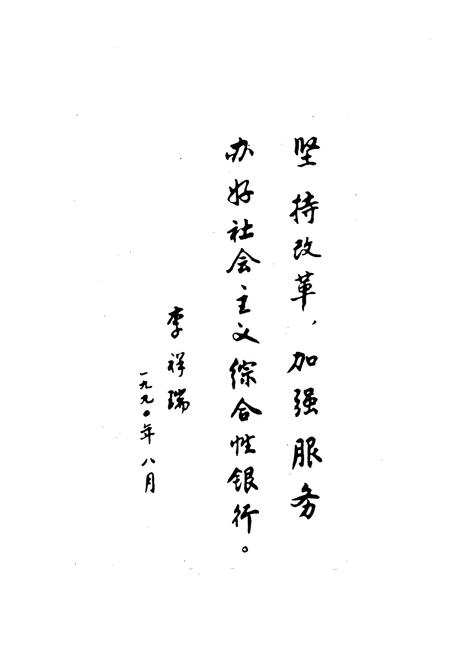 坚持改革，加强服务
办好社会主义综合性银行。
李祥瑞
一九九〇年八月